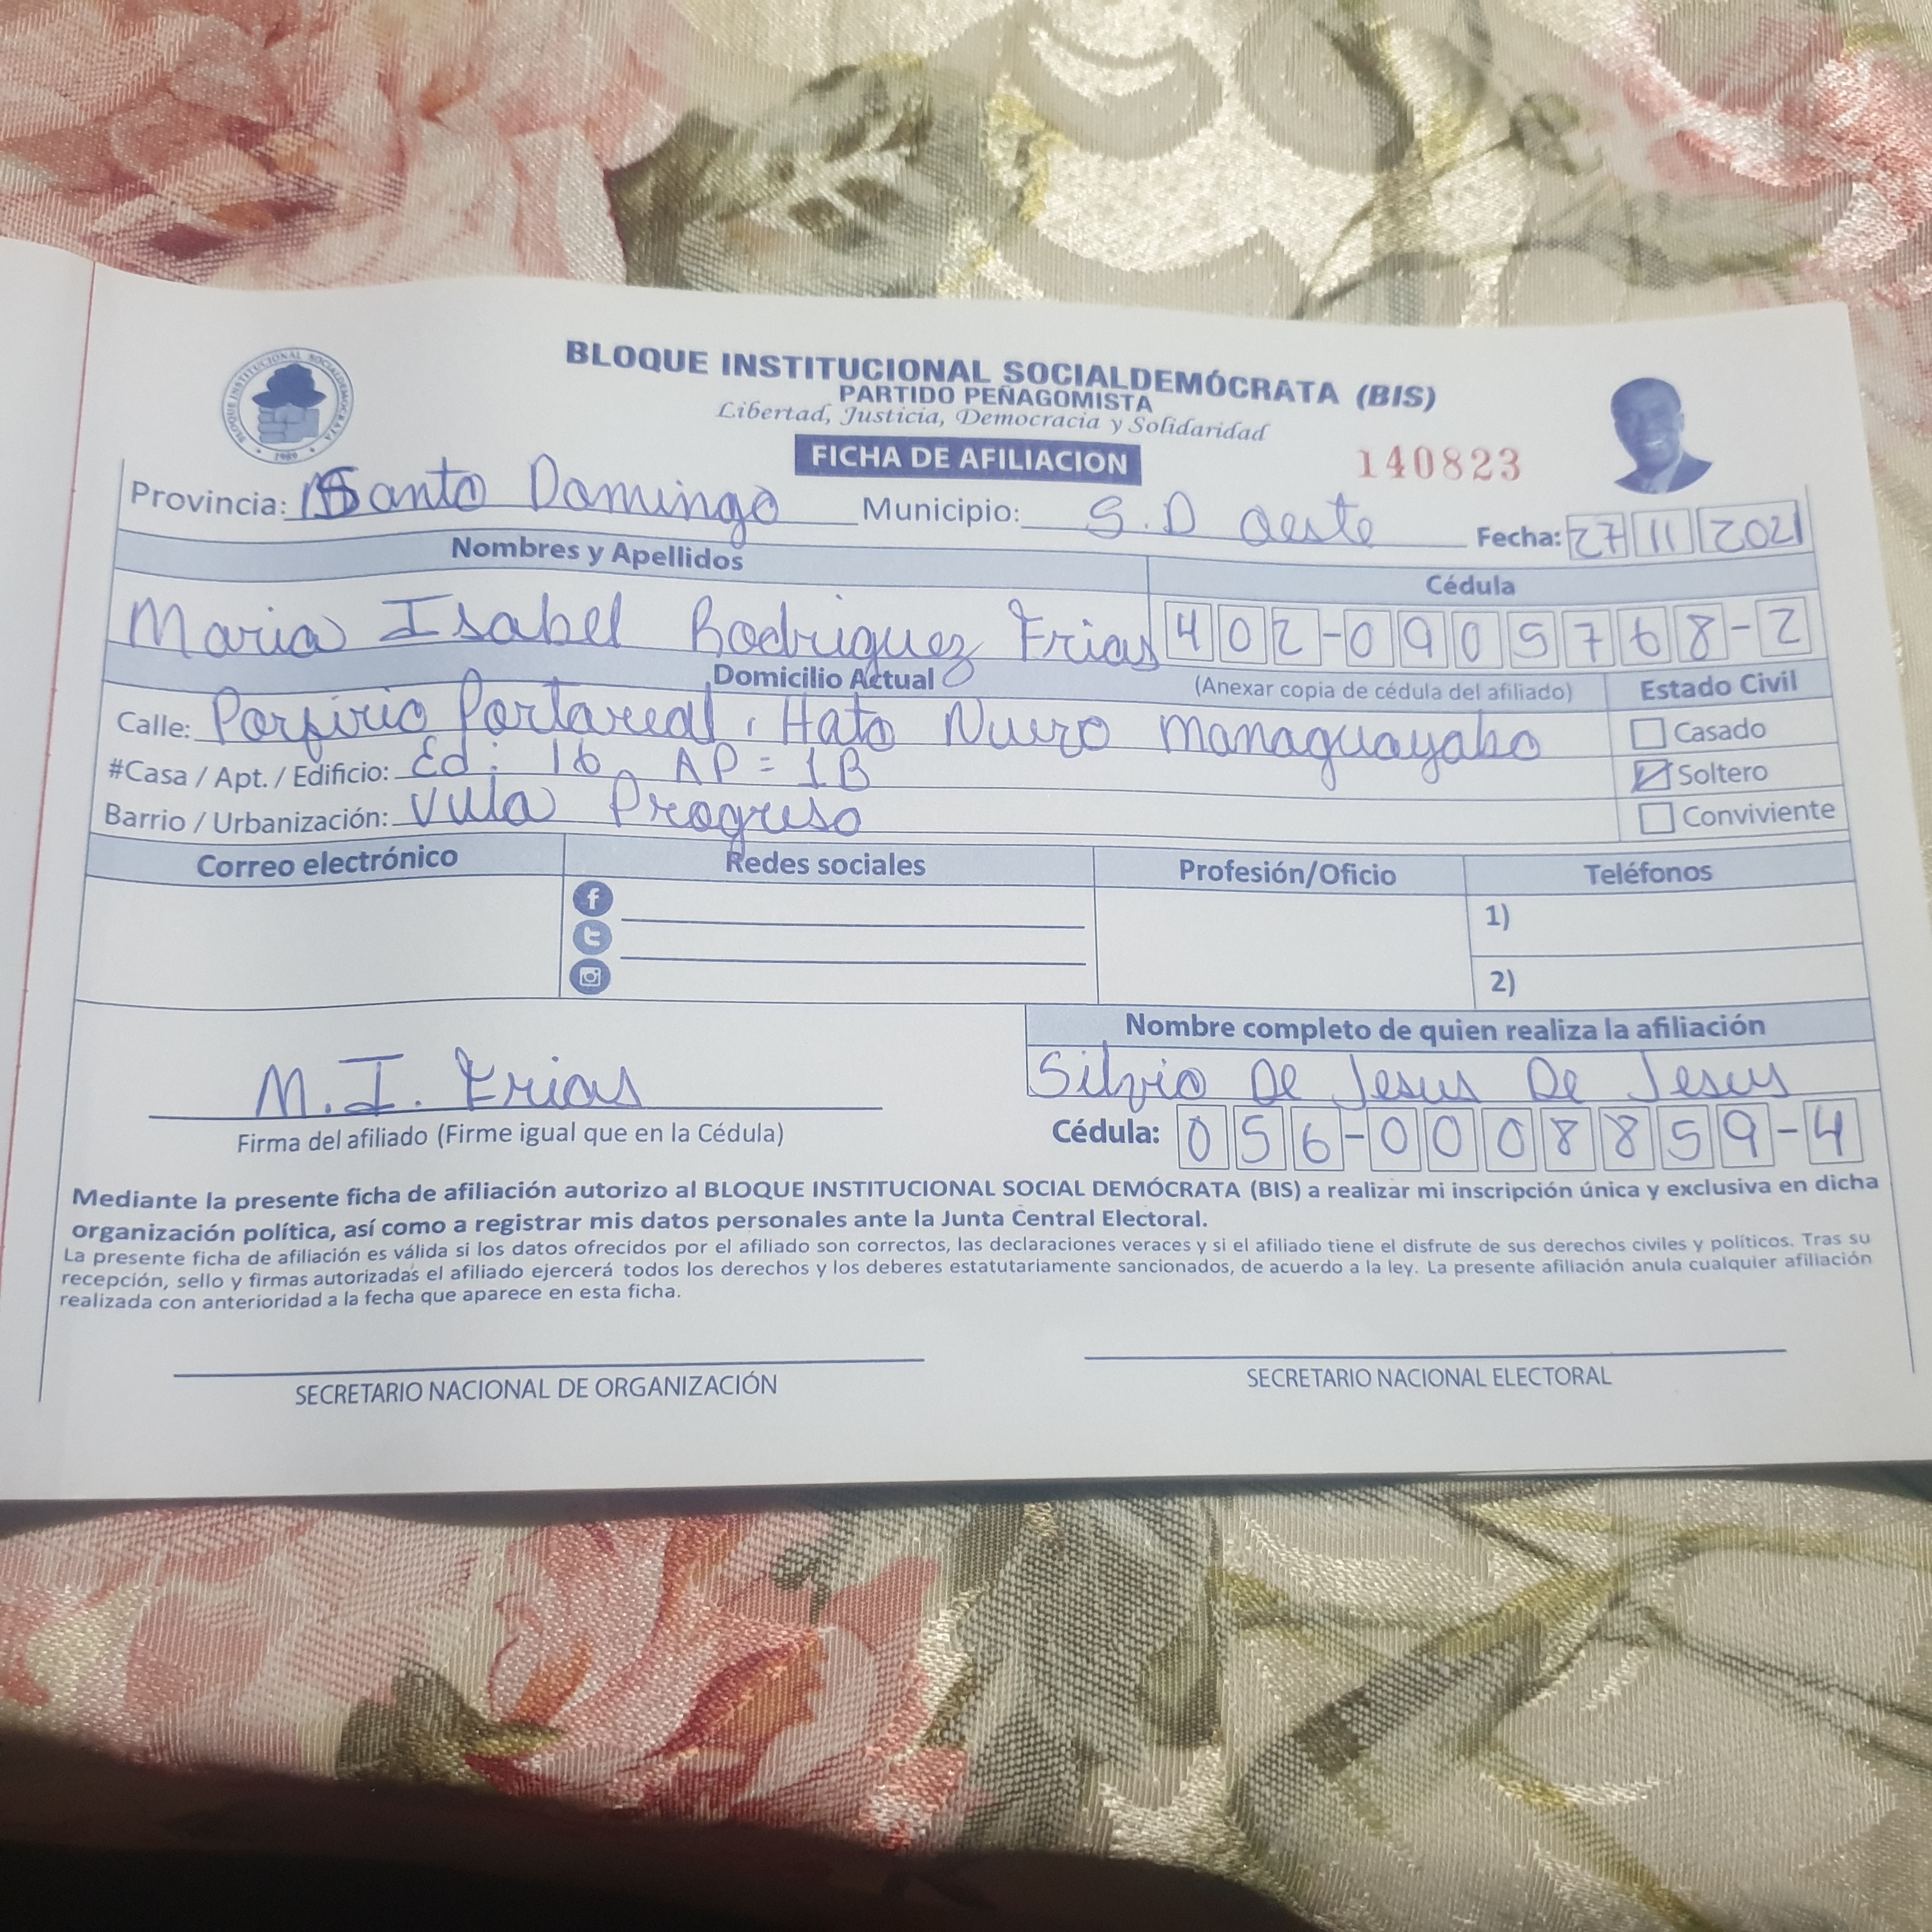 BLOQUE INSTITUCIONAL SOCIALDEMÓCRATA
1989
BLOQUE INSTITUCIONAL SOCIALDEMÓCRATA (BIS)
PARTIDO PEÑAGOMISTA
Libertad, Justicia, Democracia y Solidaridad
FICHA DE AFILIACION
140823
Provincia: Santo Domingo Municipio: S.D Oeste Fecha: 27 11 2021
Nombres y Apellidos Cédula
Maria Isabel Rodriguez Frias 402-0905768-2
Domicilio Actual (Anexar copia de cédula del afiliado) Estado Civil
Calle: Porfirio Portareal, Hato Nuevo Managuayabo Casado
#Casa / Apt. / Edificio: Ed: 16 AP = 1B Soltero
Barrio / Urbanización: Villa Progreso Conviviente
Correo electrónico Redes sociales Profesión/Oficio Teléfonos
1)
2)
Nombre completo de quien realiza la afiliación
M. I. Frias Silvio De Jesus De Jesus
Firma del afiliado (Firme igual que en la Cédula) Cédula: 056-0008859-4
Mediante la presente ficha de afiliación autorizo al BLOQUE INSTITUCIONAL SOCIAL DEMÓCRATA (BIS) a realizar mi inscripción única y exclusiva en dicha
organización política, así como a registrar mis datos personales ante la Junta Central Electoral.
La presente ficha de afiliación es válida si los datos ofrecidos por el afiliado son correctos, las declaraciones veraces y si el afiliado tiene el disfrute de sus derechos civiles y políticos. Tras su
recepción, sello y firmas autorizadas el afiliado ejercerá todos los derechos y los deberes estatutariamente sancionados, de acuerdo a la ley. La presente afiliación anula cualquier afiliación
realizada con anterioridad a la fecha que aparece en esta ficha.
SECRETARIO NACIONAL DE ORGANIZACIÓN SECRETARIO NACIONAL ELECTORAL